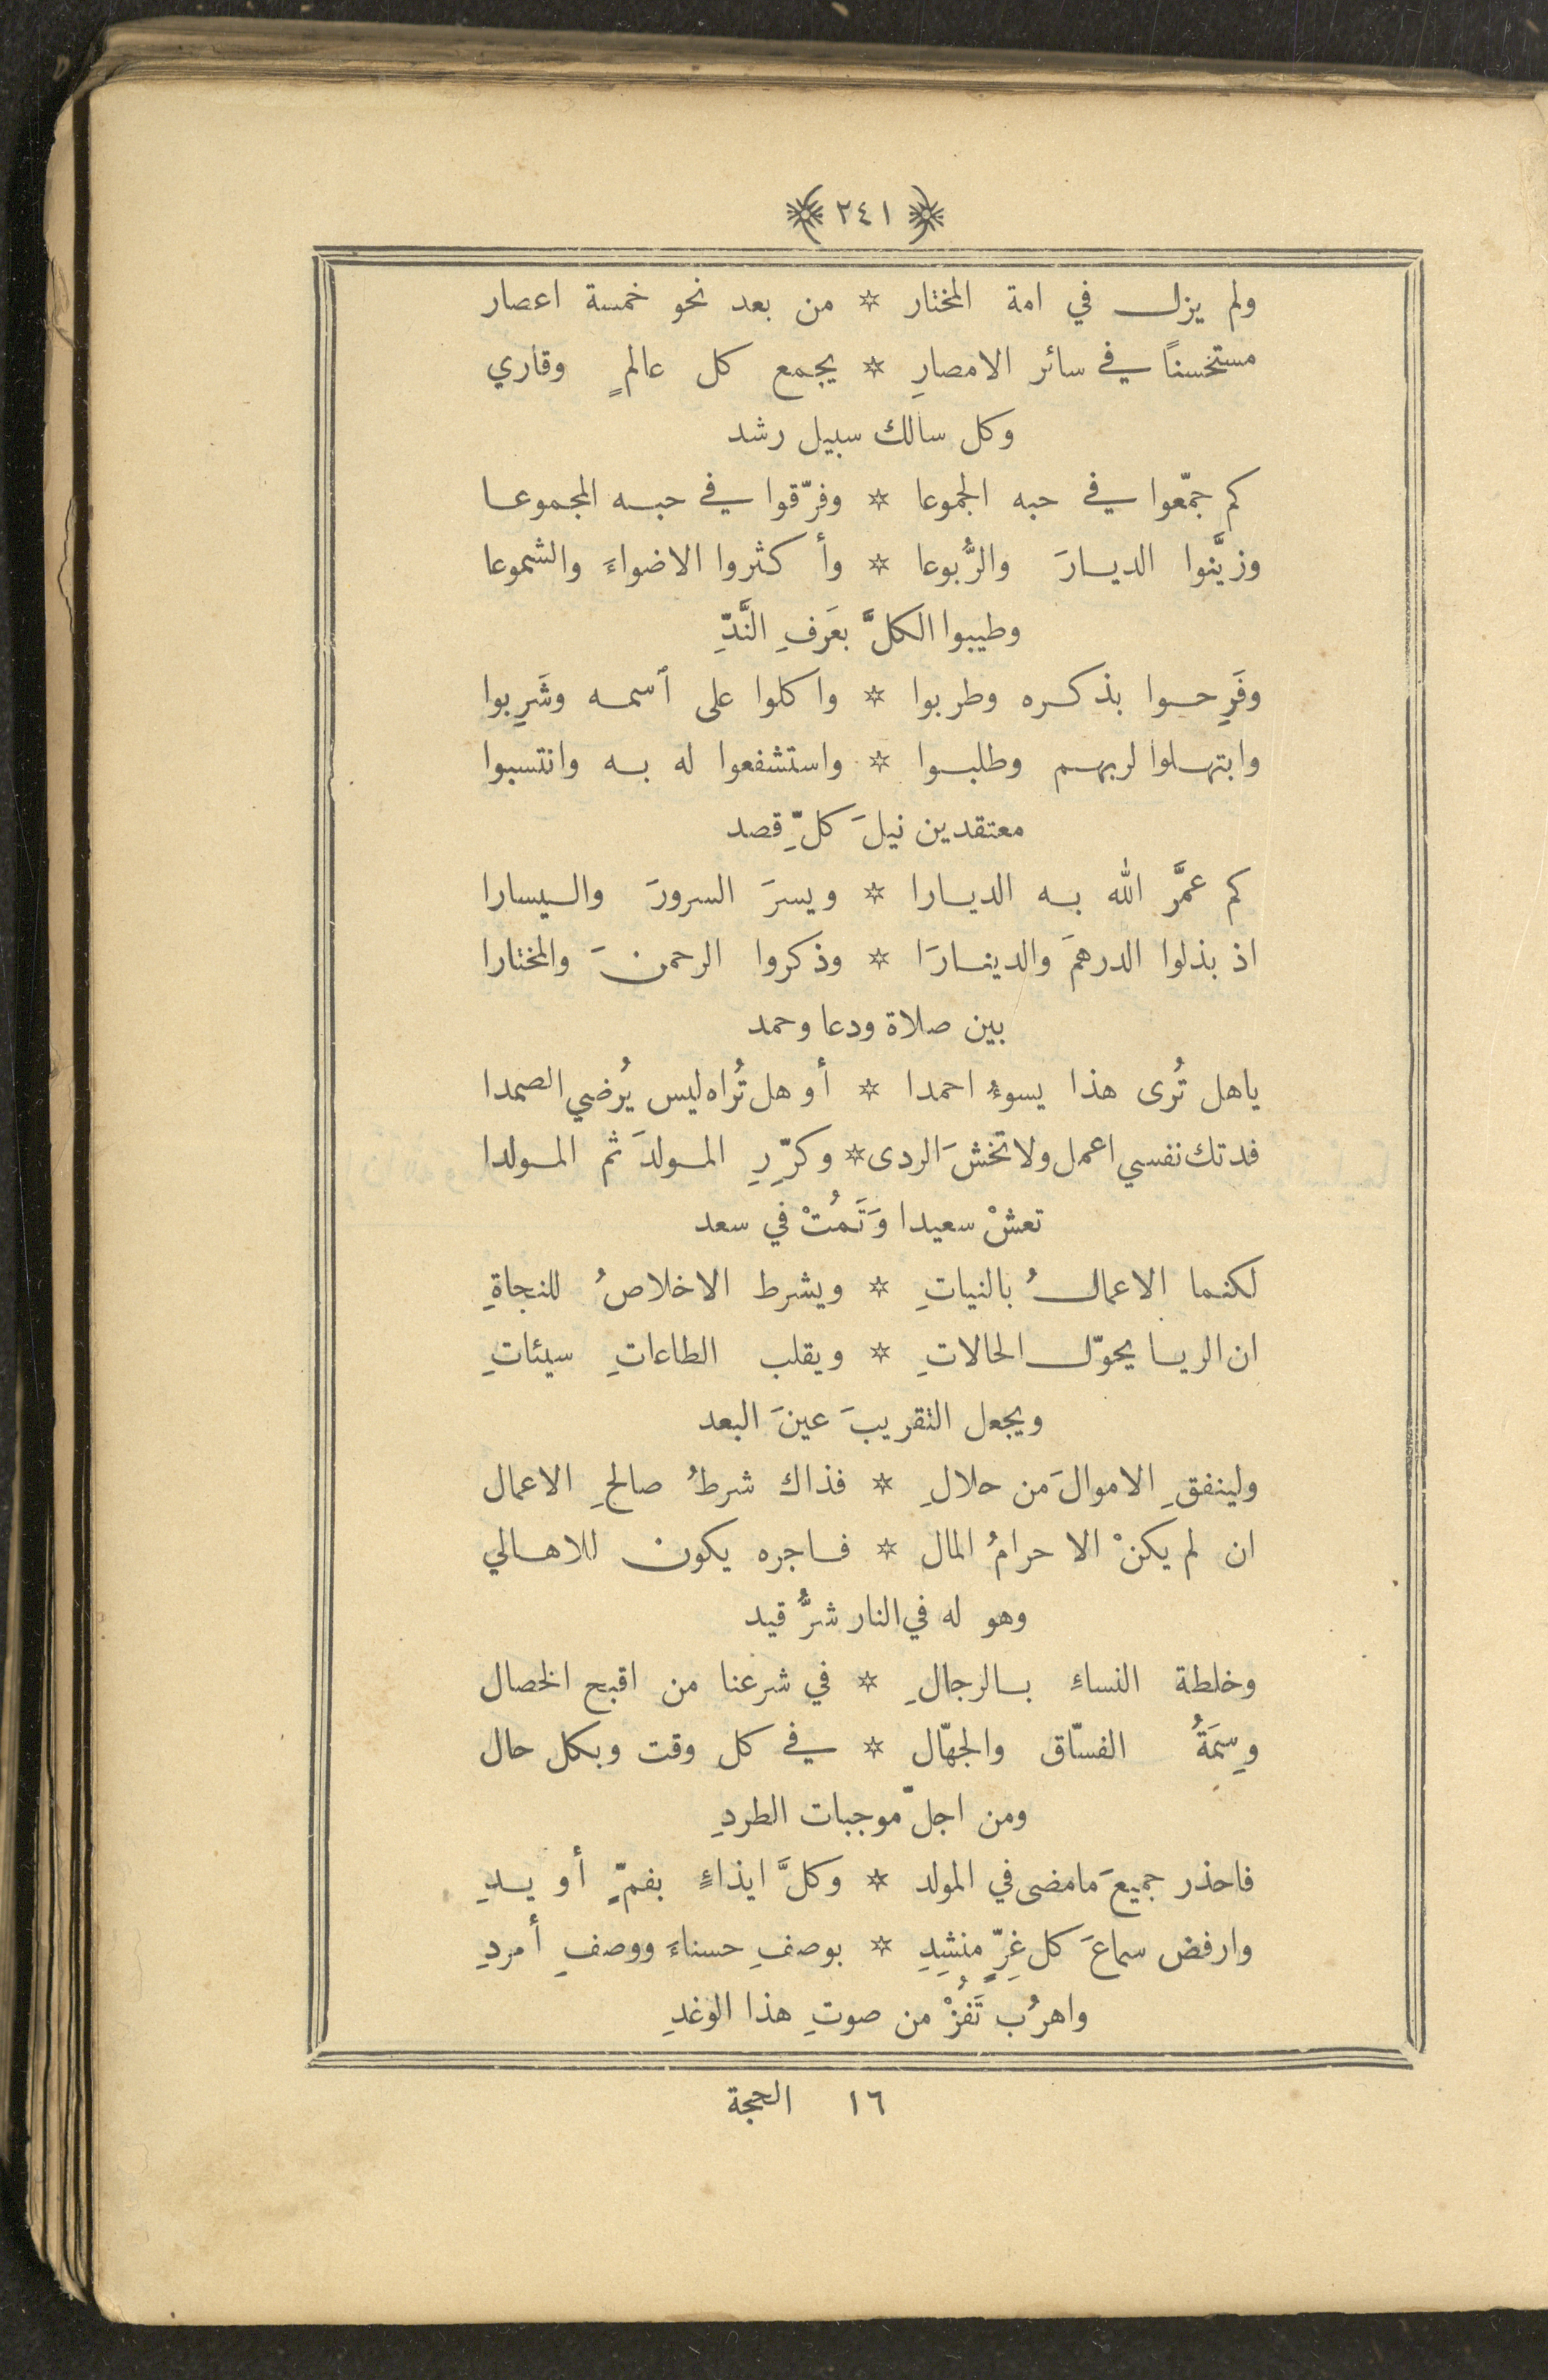 ﴿ ٢٤١ ﴾
ولم يزل في امة المختار * من بعد نحو خمسة اعصار
مستحسناً في سائر الامصارِ * يجمع كل عالمٍ وقاري
وكل سالك سبيل رشد
كم جمّعوا في حبه الجموعا * وفرّقوا في حبه المجموعا
وزيَّنوا الديارَ والرُّبوعا * وأكثروا الاضواءَ والشموعا
وطيبوا الكلَّ بعَرفِ النَّدِّ
وفَرِحوا بذكره وطربوا * واكلوا على ٱسمه وشَرِبوا
وابتهلوا لربهم وطلبوا * واستشفعوا له به وانتسبوا
معتقدين نيلَ كلِّ قصد
كم عمَّر الله به الديارا * ويسرَ السرورَ واليسارا
اذ بذلوا الدرهمَ والدينارَا * وذكروا الرحمنَ والمختارا
بين صلاة ودعا وحمد
ياهل تُرى هذا يسوءُ احمدا * أو هل تُراه ليس يُرضي الصمدا
فدتك نفسي اعمل ولا تخشَ الردى * وكرّرِ المولدَ ثم المولدا
تعشْ سعيدا وَتَمُتْ في سعد
لكنما الاعمالُ بالنياتِ * ويشرط الاخلاصُ للنجاةِ
ان الريا يحوّل الحالاتِ * ويقلب الطاعاتِ سيئاتِ
ويجعل التقريبَ عينَ البعد
ولينفقِ الاموالَ من حلالِ * فذاك شرطُ صالحِ الاعمال
ان لم يكنْ الا حرامُ المال * فاجره يكون للاهالي
وهو له في النار شرُّ قيد
وخلطة النساءِ بالرجالِ * في شرعنا من اقبح الخصال
وسِمَةُ الفسّاق والجهّال * في كل وقت وبكل حال
ومن اجلّ موجبات الطردِ
فاحذر جميعَ مامضى في المولد * وكلَّ ايذاءٍ بفمٍّ أو يدِ
وارفض سماعَ كل غِرٍّ منشِدِ * بوصفِ حسناءَ ووصفِ أمردِ
واهرُب تَفُزْ من صوتِ هذا الوغدِ
١٦ الحجة